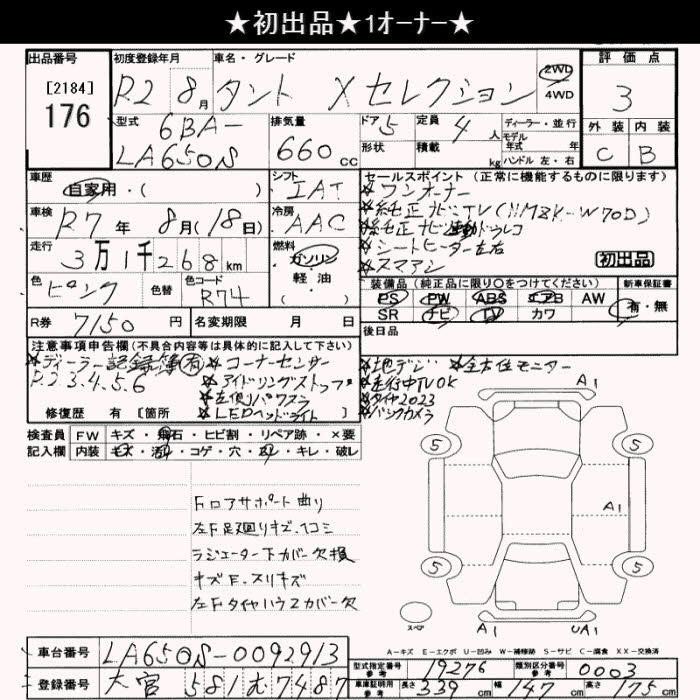 ★初出品★1オーナー★
出品番号 初度登録年月 車名・グレード 評価点
[2184]
176
R2 8月 タント Xセレクション 2WD 4WD 3
型式 排気量 ドア 定員 ディーラー・並行 外装 内装
6BA-
LA650S 660cc 5 4人 モデル 年式 年
形状 積載 kg ハンドル 左・右 C B
車歴 シフト セールスポイント(正常に機能するものに限ります)
自家用・( ) IAT ☆ワンオーナー
車検 R7年 8月(18日) 冷房 AAC ☆純正ナビTV(NMZK-W70D)
☆純正ナビ連動ドラレコ
走行 3万1千268km 燃料 ガソリン 軽油 ( ) ☆シートヒーター左右
☆スマアシ 初出品
色 ピンク 色替 色コード R74
装備品(純正品に限り○をつけてください) 新車保証書
PS PW ABS エアB AW 有・無
SR ナビ TV カワ
R券 7150円 名変期限 月 日 後日品
注意事項申告欄(不具合内容等は具体的に記入して下さい)
☆ディーラー記録簿(有) ☆コーナーセンサー ☆地デジ ☆全方位モニター
R2.3.4.5.6 ☆アイドリングストップ ☆走行中TVOK
☆左側パワスラ ☆タイヤ2023
修復歴 有 [箇所 ☆LEDヘッドライト ] ☆バックカメラ
検査員 FW キズ・飛石・ヒビ割・リペア跡・×要
記入欄 内装 キズ・汚れ・コゲ・穴・凹・キレ・破レ
A1
5 5
Fロアサポート曲り
A1
左F足廻りキズ、凹コミ
ラジエーター下カバー欠損
キズE、スリキズ
5 5
左FタイヤハウスカバーX欠
スペア
A1 UA1
A-キズ E-エクボ U-凹み W-補修跡 S-サビ C-腐食 XX-交換済
車台番号 LA650S-0092913
型式指定番号 参考 19276 類別区分番号 参考 0003
登録番号 大宮 581む7487
車庫証明用 参考 長さ 339cm 幅 147cm 高さ 175cm